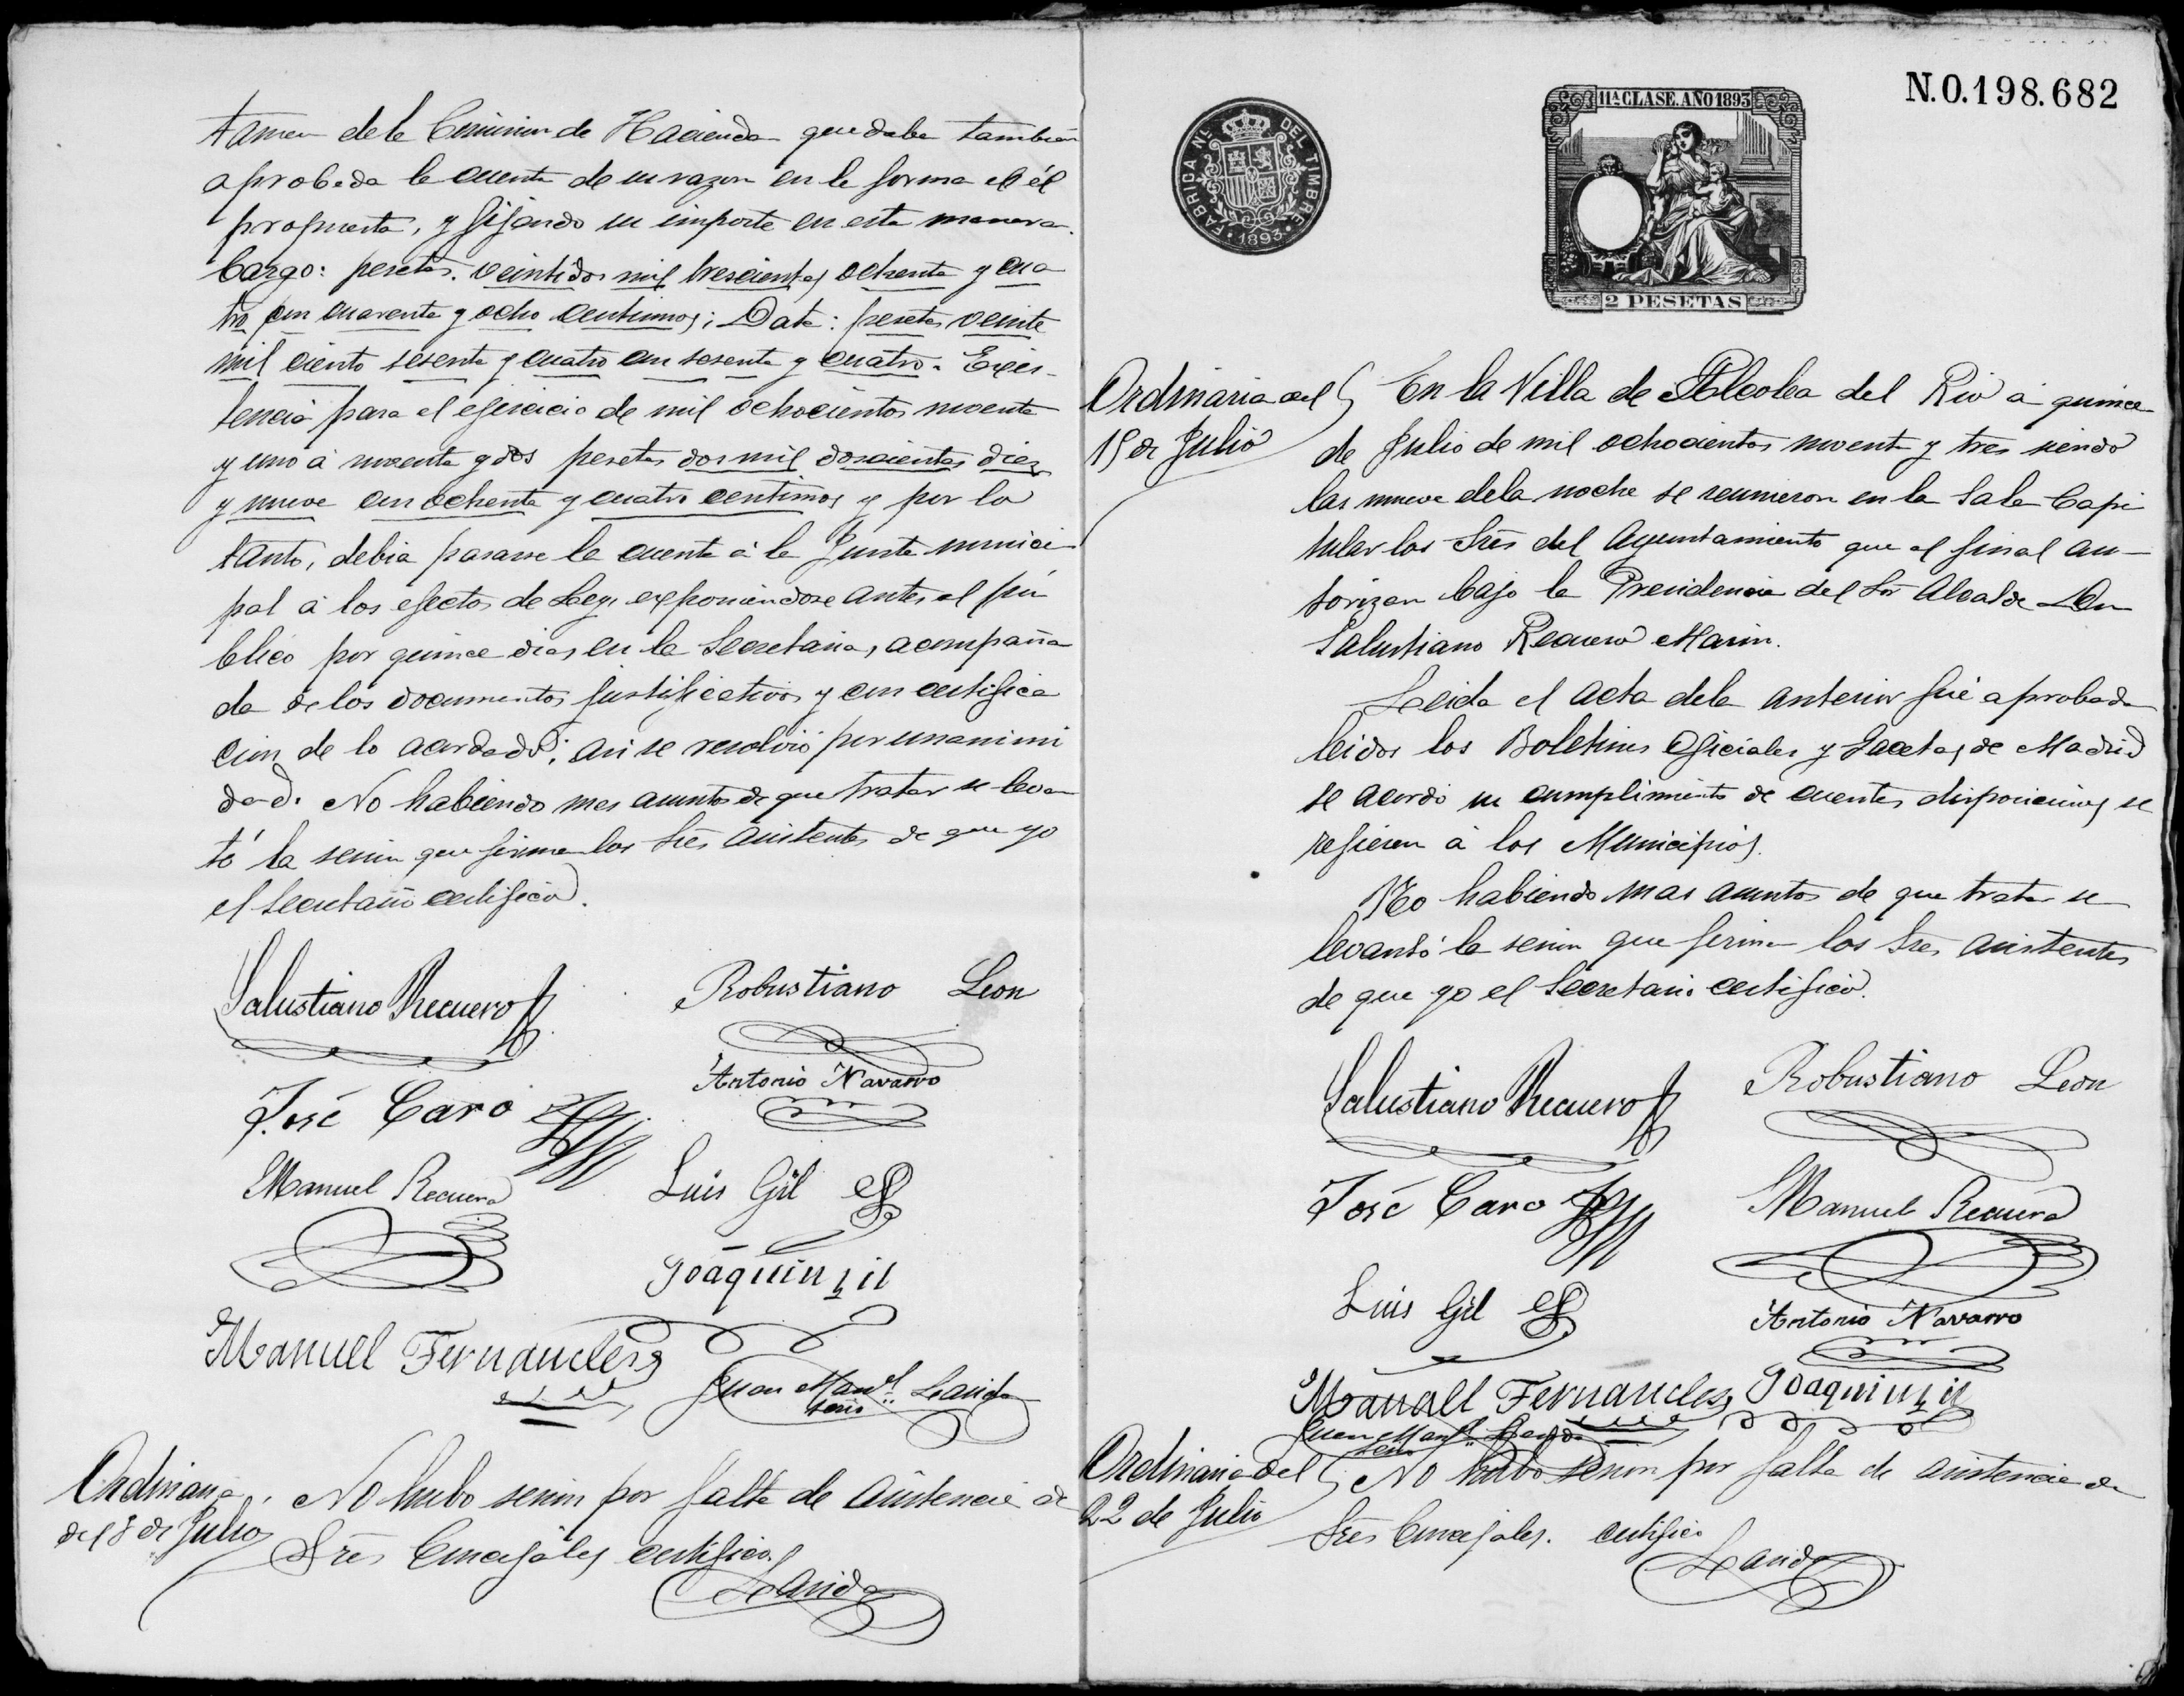 tamen dela Comision de Hacienda quedaba tambien
aprobada la cuenta de su razon en la forma el él
propuesta, y fijando su importe en esta manera.
Cargo: pesetas. veintidos mil trescientas ochenta y cua
tro con cuarenta y ocho centimos; Data: pesetas veinte
mil ciento sesenta y cuatro con sesenta y cuatro. Exis-
tencia para el ejercicio de mil ochocientos noventa
y uno á noventa y dos pesetas dos mil doscientas diez
y nueve con ochenta y cuatro centimos y por lo
tanto, debia pasarse la cuenta á la Junta munici-
pal á los efectos de Ley, exponiendose antes al pú
blico por quince dias en la Secretaria, acompaña
da de los documentos justificativos y con certifica
cion de lo acordado; asi se resolvió por unanimi
dad. No habiendo mas asuntos de que tratar se levan
tó la sesion que firman los Sres asistentes de que yo
el Secretario certifico.
Salustiano Recuero
Robustiano Leon
José Caro
Antonio Navarro
Manuel Recuero
Luis Gil
Joaquin Gil
Manuel Fernandes
Juan Manl. Landa
Srio
Ordinaria
del 8 de Julio
No hubo sesion por falta de asistencia de
Sres Concejales certifico.
Landa
N.0.198.682
FABRICA NL. DEL TIMBRE
1893
11ª CLASE. AÑO 1893
2 PESETAS
Ordinaria del
15 de Julio
En la Villa de Alcolea del Rio á quince
de Julio de mil ochocientos noventa y tres siendo
las nueve dela noche se reunieron en la Sala Capi
tular los Sres del Ayuntamiento que al final au-
torizan bajo la Presidencia del Sor Alcalde Don
Salustiano Recuero Marin.
Leida el acta dela anterior fué aprobada
leidos los Boletines Oficiales y Gacetas de Madrid
se acordó su cumplimiento de cuentas disposiciones se
refieren á los Municipios.
No habiendo mas asuntos de que tratar se
levantó la sesion que firman los Sres asistentes
de que yo el Secretario certifico.
Salustiano Recuero
Robustiano Leon
José Caro
Manuel Recuero
Luis Gil
Antonio Navarro
Manuel Fernandes
Joaquin Gil
Juan Manl. Landa
Srio
Ordinaria del
22 de Julio
No hubo sesion por falta de asistencia de
Sres Concejales. certifico
Landa